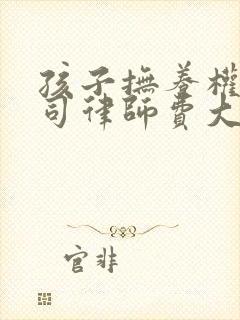 孩子撫養權
司律師費大
官非